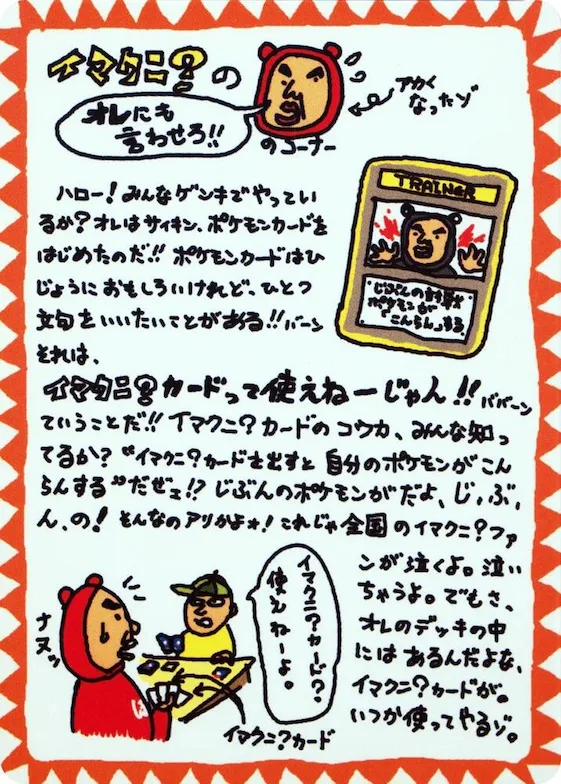 イマクニ?の
オレにも
言わせろ!!
のコーナー
アカく
なったゾ
ハロー!みんなゲンキでやってい
るか?オレはサイキン、ポケモンカードを
はじめたのだ!!ポケモンカードはひ
じょうにおもしろいけれど、ひとつ
文句をいいたいことがある!!バーン
それは、
TRAINER
じぶんの対戦
ポケモンが
「こんらん」する。
イマクニ?カードって使えねーじゃん!!ババーン
ていうことだ!!イマクニ?カードのコウカ、みんな知っ
てるか?“イマクニ?カードを出すと自分のポケモンがこん
らんする”だぜェ!?じぶんのポケモンがだよ、じ,ぶ,
ん、の!そんなのアリかよォ!これじゃ全国のイマクニ?ファ
ンが泣くよ。泣い
ちゃうよ。でもさ、
オレのデッキの中
にはあるんだよな、
イマクニ?カードが。
いつか使ってやるゾ。
ナヌッ
イマクニ?カード?
使えねーよ。
イマクニ?カード